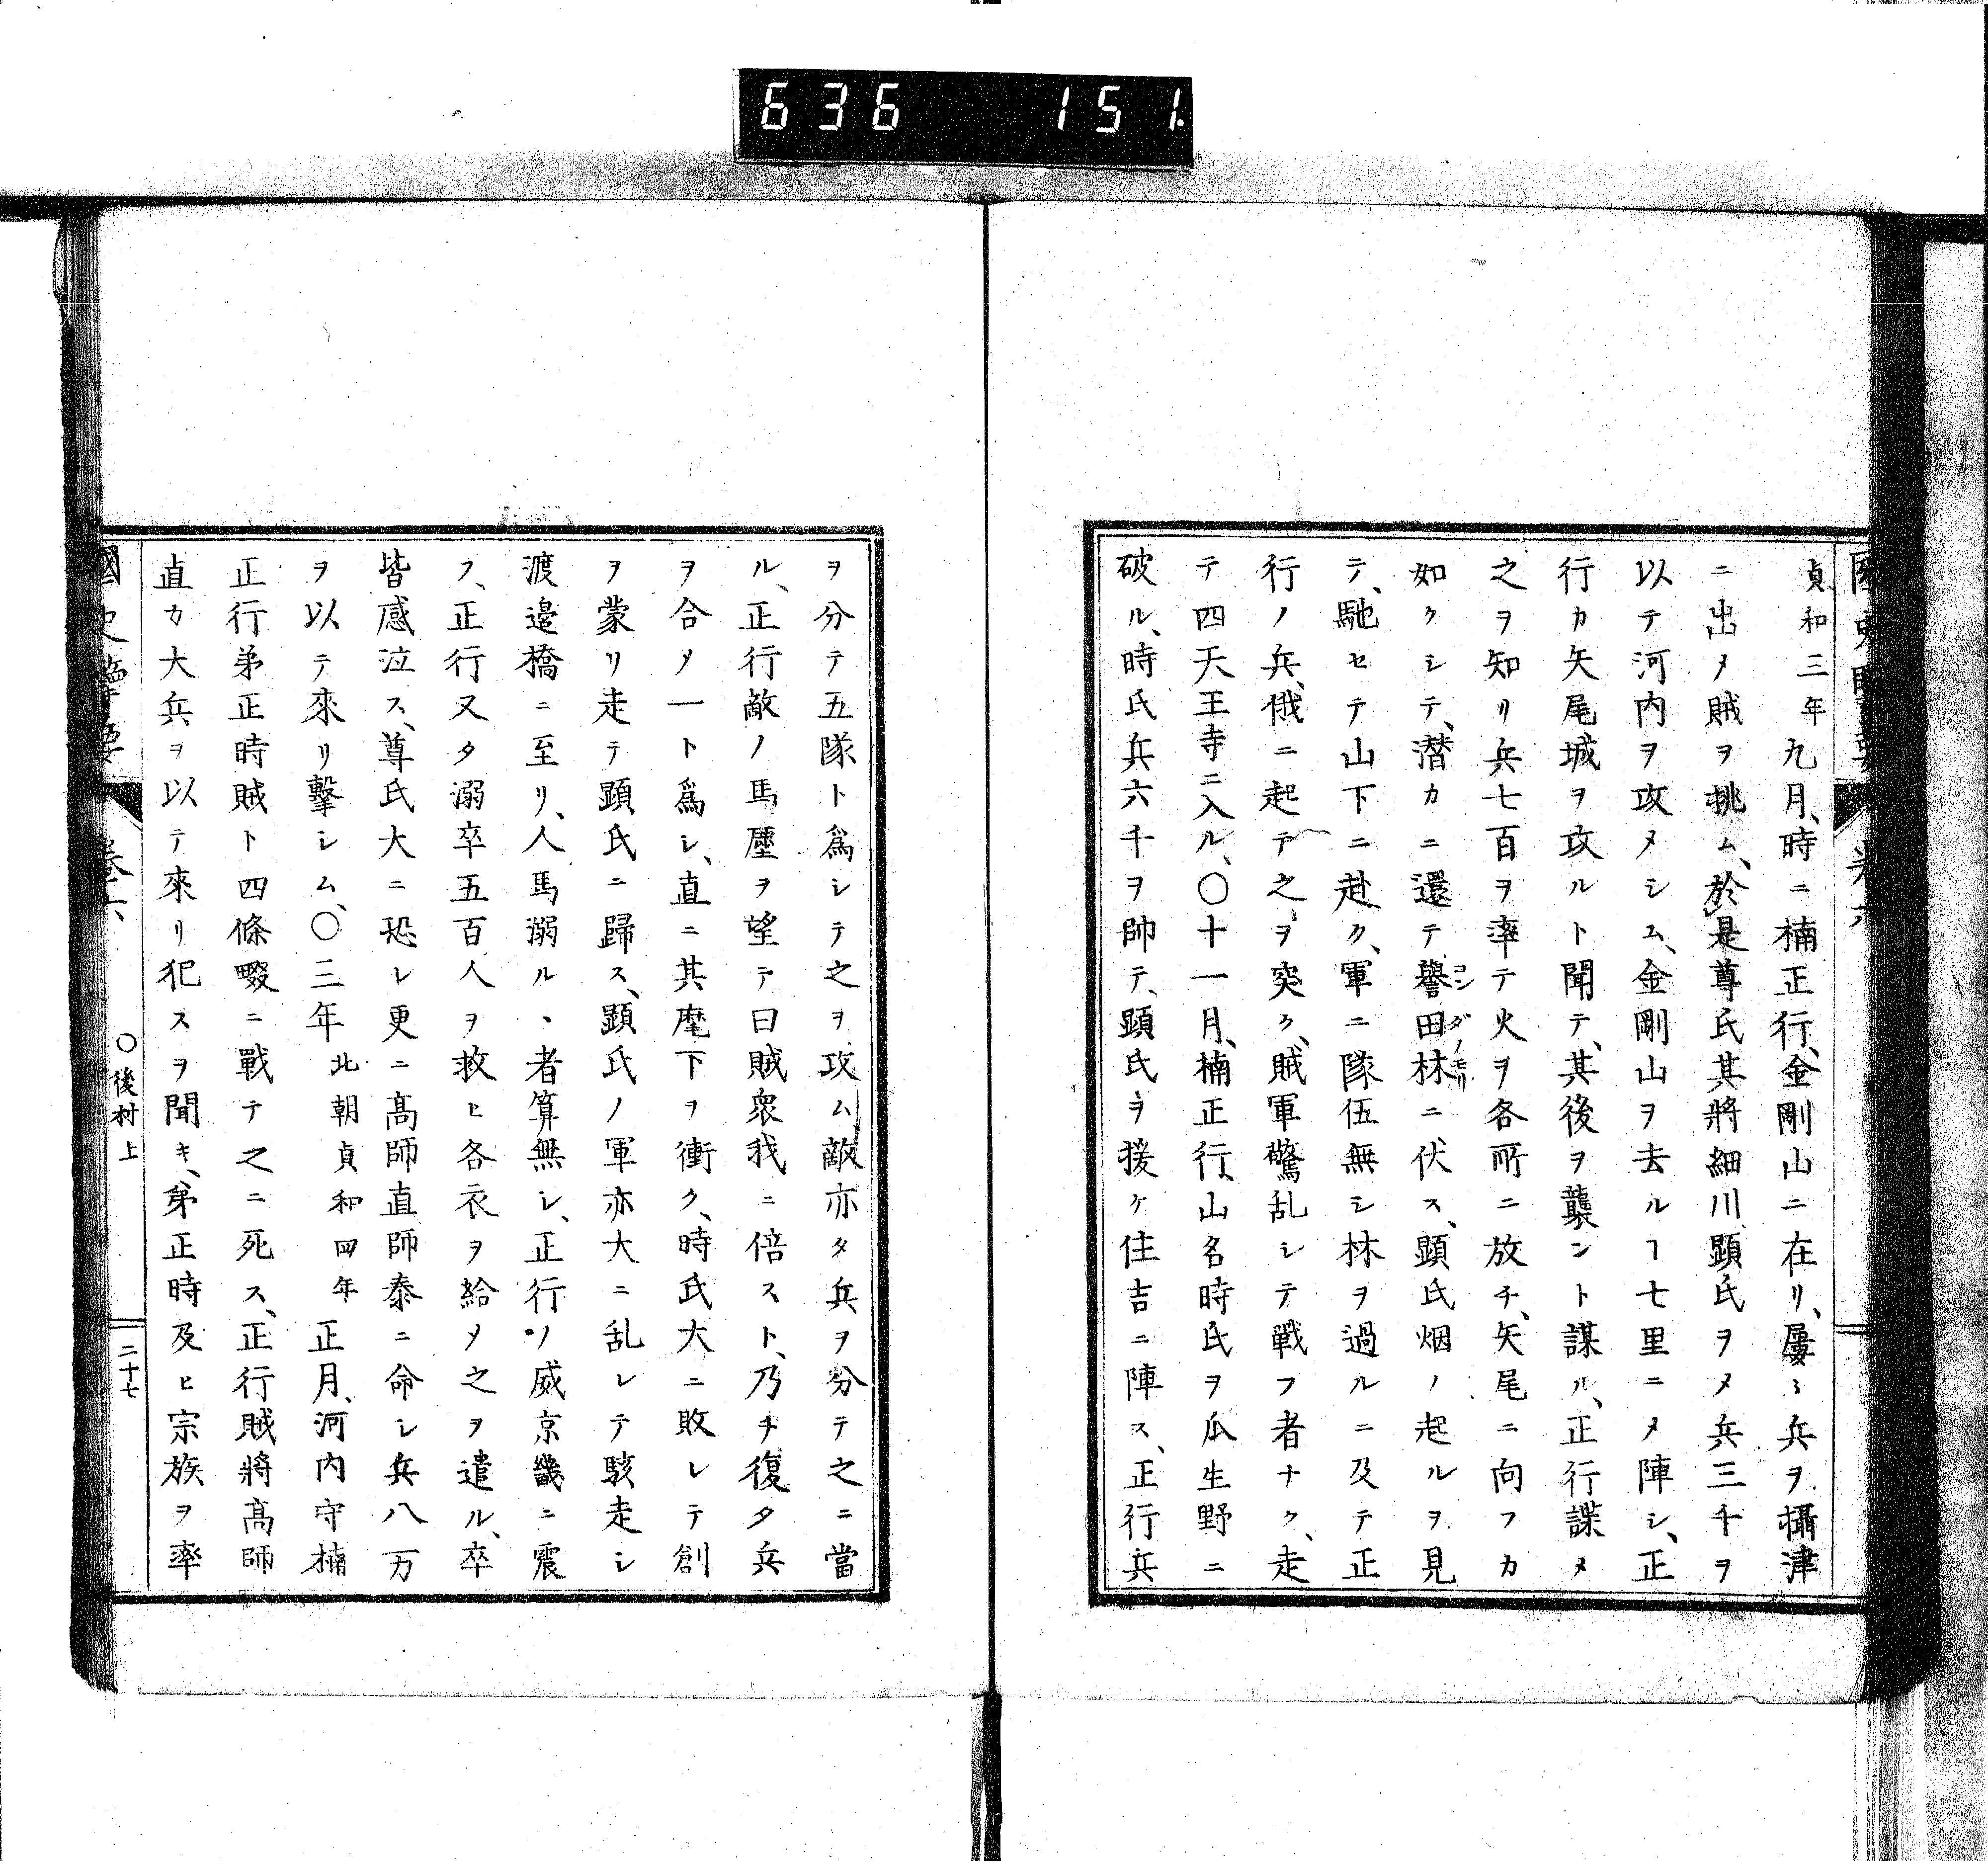 636 151.
貞和三年九月、時ニ楠正行、金剛山ニ在リ、屢〻兵ヲ攝津
ニ出メ賊ヲ挑ム、於是尊氏其將細川顕氏ヲメ兵三千ヲ
以テ河内ヲ攻メシム、金剛山ヲ去ルヿ七里ニメ陣シ、正
行カ矢尾城ヲ攻ルト聞テ、其後ヲ襲ント謀ル、正行諜メ
之ヲ知リ兵七百ヲ率テ火ヲ各所ニ放チ、矢尾ニ向フカ
如クシテ、潜カニ還テ譽田林ニ伏ス、顕氏烟ノ起ルヲ見
コンダノモリ
テ、馳セテ山下ニ赴ク、軍ニ隊伍無シ林ヲ過ルニ及テ正
行ノ兵、俄ニ起テ之ヲ突ク、賊軍驚乱シテ戰フ者ナク、走
テ四天王寺ニ入ル、〇十一月、楠正行、山名時氏ヲ瓜生野ニ
破ル、時氏兵六千ヲ帥テ、顕氏ヲ援ケ住吉ニ陣ス、正行兵
ヲ分テ五隊ト爲シテ之ヲ攻ム、敵亦タ兵ヲ分テ之ニ當
ル、正行敵ノ馬塵ヲ望テ曰賊衆我ニ倍スト、乃チ復タ兵
ヲ合メ一ト爲シ、直ニ其麾下ヲ衝ク、時氏大ニ敗レテ創
ヲ蒙リ走テ顕氏ニ歸ス、顕氏ノ軍亦大ニ乱レテ駭走シ
渡邉橋ニ至リ、人馬溺ルヽ者算無シ、正行ノ威京畿ニ震
フ、正行又タ溺卒五百人ヲ救ヒ各衣ヲ給メ之ヲ遣ル、卒
皆感泣ス、尊氏大ニ恐レ更ニ高師直師泰ニ命シ兵八万
ヲ以テ來リ擊シム、〇三年北朝貞和四年正月、河内守楠
正行弟正時賊ト四條畷ニ戰テ之ニ死ス、正行賊將高師
直カ大兵ヲ以テ來リ犯スヲ聞キ、弟正時及ヒ宗族ヲ率
國史 要 卷六 〇後村上 二十七